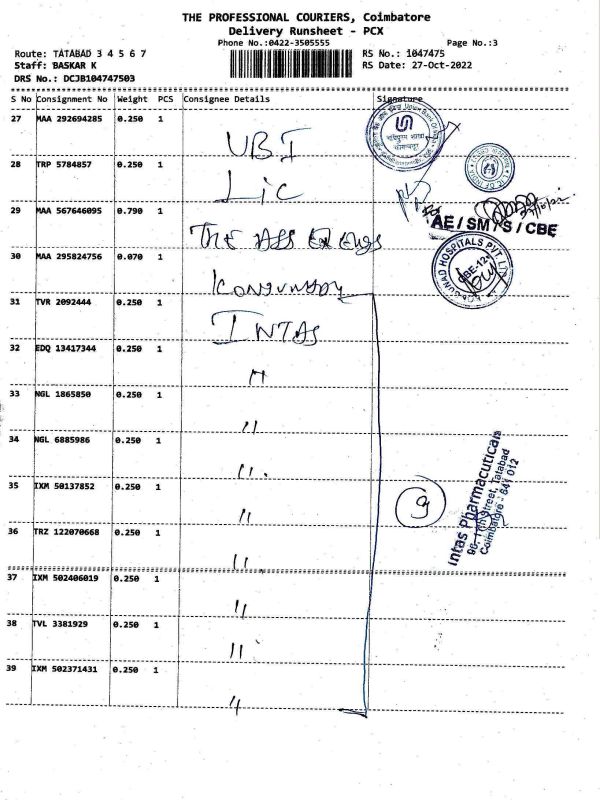 THE PROFESSIONAL COURIERS, Coimbatore
Delivery Runsheet - PCX
Phone No.:0422-3505555
Page No.:3
Route: TATABAD 3 4 5 6 7
RS No.: 1047475
Staff: BASKAR K
RS Date: 27-Oct-2022
DRS No.: DCJB104747503
S No Consignment No Weight PCS Consignee Details Signature
27 MAA 292694285 0.250 1 UBI
28 TRP 5784857 0.250 1 Lic
29 MAA 567646095 0.790 1 The
AE / SM / S / CBE
30 MAA 295824756 0.070 1
HOSPITALS PVT
31 TVR 2092444 0.250 1 INTAS
32 EDQ 13417344 0.250 1 "
33 NGL 1865850 0.250 1 "
34 NGL 6885986 0.250 1 "
35 IXM 50137852 0.250 1 "
9
Intas Pharmaceuticals
Street, Tatabad
Coimbatore - 641 012
36 TRZ 122070668 0.250 1 "
37 IXM 502406019 0.250 1 "
38 TVL 3381929 0.250 1 "
39 IXM 502371431 0.250 1 "